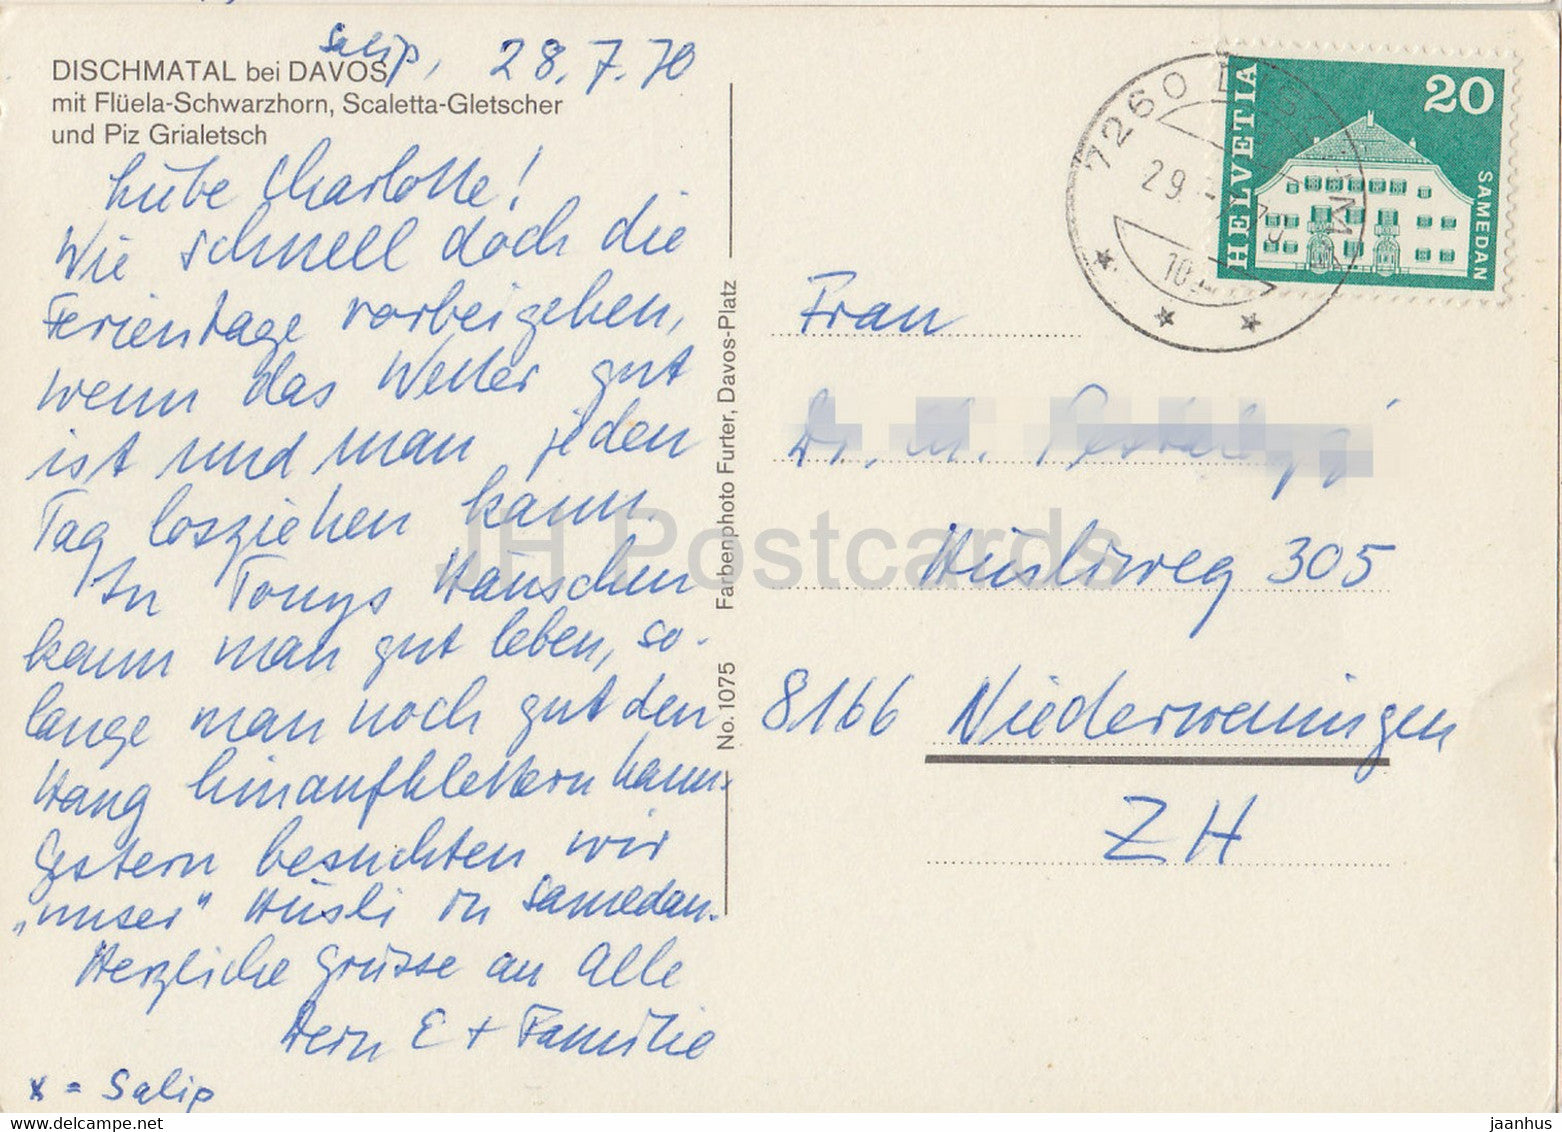 Salip, 28.7.70
DISCHMATAL bei DAVOS
mit Flüela-Schwarzhorn, Scaletta-Gletscher
und Piz Grialetsch
Liebe Charlotte!
Wie schnell doch die
Ferientage vorbeigehen,
wenn das Wetter gut
ist und man jeden
Tag losziehen kann.
In Tonys Häuschen
kann man gut leben, so-
lange man noch gut den
Hang hinaufklettern kann.
Gestern besuchten wir
„unser" Hüsli in Samedan.
Herzliche Grüsse an Alle
E + Familie
x = Salip
No. 1075 Farbenphoto Furter, Davos-Platz
7260
29.
10
HELVETIA
20
SAMEDAN
Frau
Dr. M.
Hüsliweg 305
8166 Niederweningen
ZH
JH Postcards
jaanhus